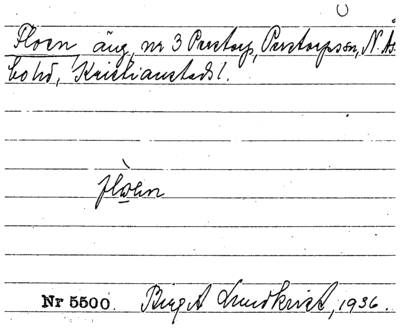 Floen äng, nr 3 Perstorp, Perstorps sn, N. Ås-
bo hd, Kristianstads l.
flωen
Nr 5500. Birgit Lundkvist, 1936.